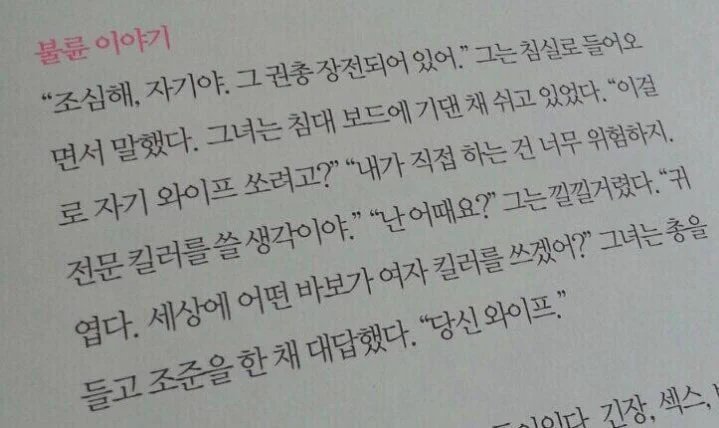 불륜 이야기
“조심해, 자기야. 그 권총 장전되어 있어.” 그는 침실로 들어오
면서 말했다. 그녀는 침대 보드에 기댄 채 쉬고 있었다. “이걸
로 자기 와이프 쏘려고?” “내가 직접 하는 건 너무 위험하지.
전문 킬러를 쓸 생각이야.” “난 어때요?” 그는 낄낄거렸다. “귀
엽다. 세상에 어떤 바보가 여자 킬러를 쓰겠어?” 그녀는 총을
들고 조준을 한 채 대답했다. “당신 와이프.”
긴장, 섹스,